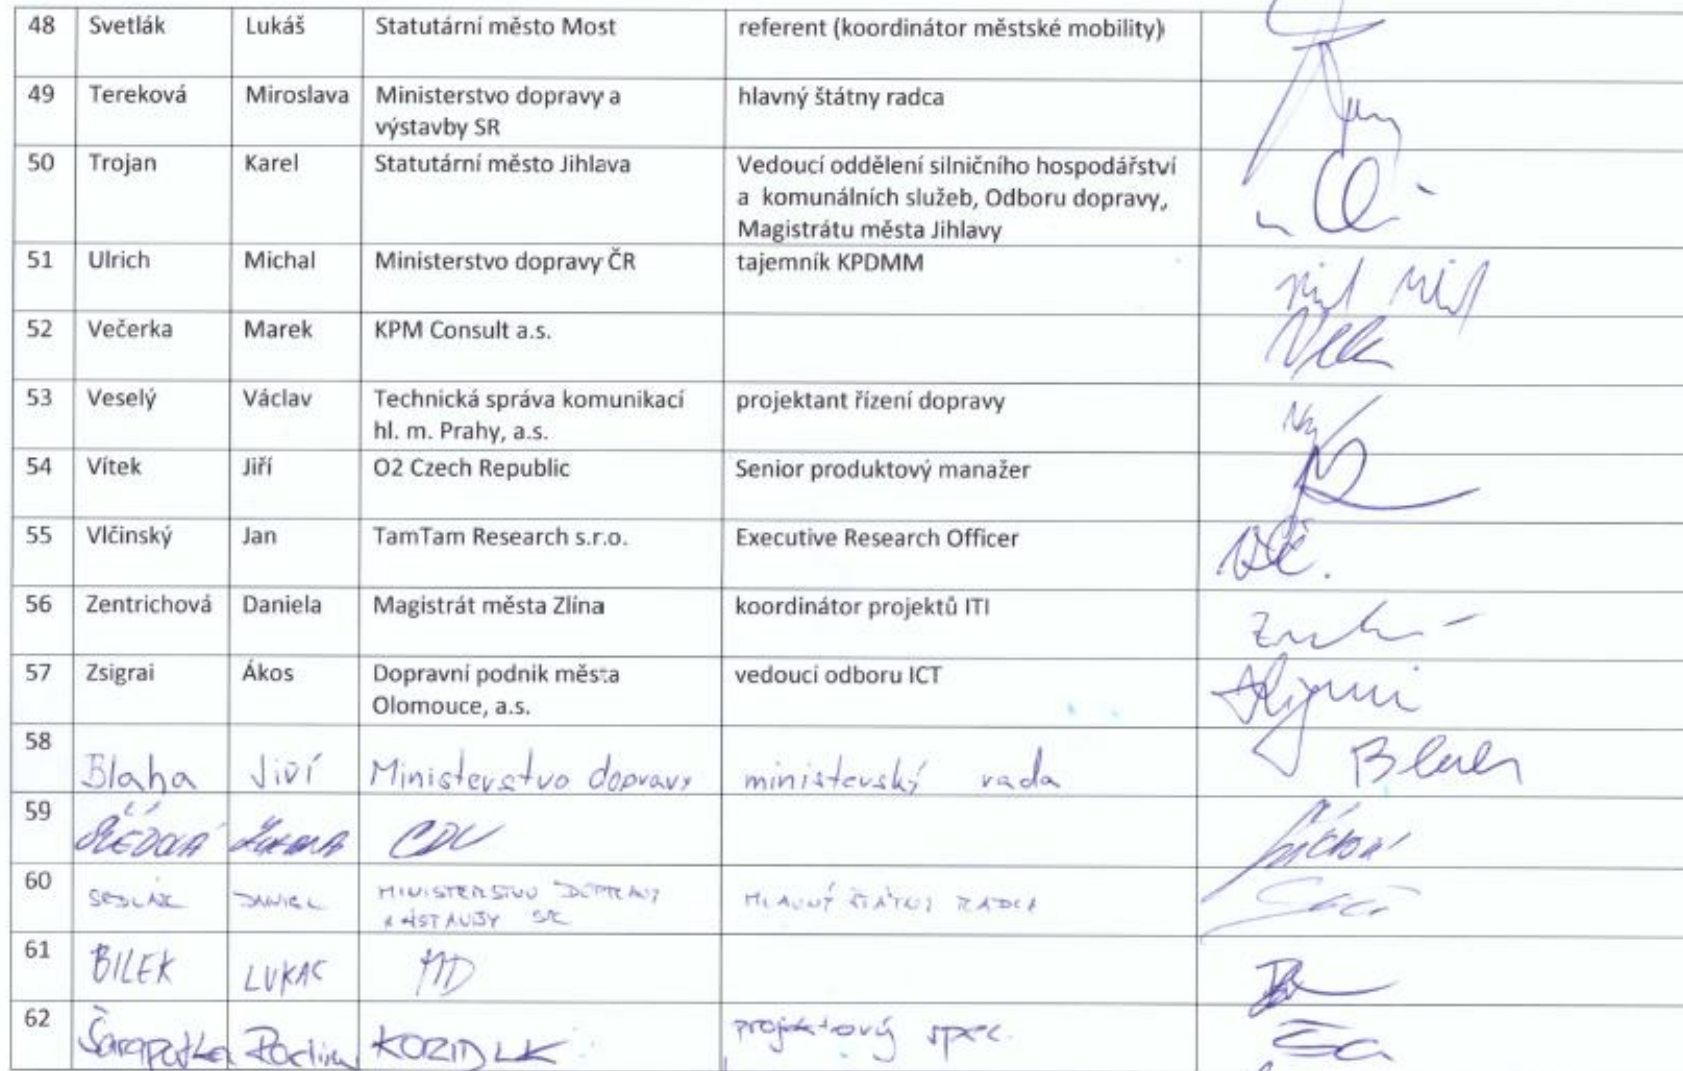 48 Svetlák Lukáš Statutární město Most referent (koordinátor městské mobility)
49 Tereková Miroslava Ministerstvo dopravy a hlavný štátny radca
výstavby SR
50 Trojan Karel Statutární město Jihlava Vedoucí oddělení silničního hospodářství
a komunálních služeb, Odboru dopravy,
Magistrátu města Jihlavy
51 Ulrich Michal Ministerstvo dopravy ČR tajemník KPDMM
52 Večerka Marek KPM Consult a.s.
53 Veselý Václav Technická správa komunikací projektant řízení dopravy
hl. m. Prahy, a.s.
54 Vítek Jiří O2 Czech Republic Senior produktový manažer
55 Vlčinský Jan TamTam Research s.r.o. Executive Research Officer
56 Zentrichová Daniela Magistrát města Zlína koordinátor projektů ITI
57 Zsigrai Ákos Dopravní podnik města vedoucí odboru ICT
Olomouce, a.s.
58
Blaha Jiří Ministerstvo dopravy ministerský rada
59
CDV
60
SEDLÁK DANIEL MINISTERSTVO DOPRAVY HLAVNÝ ŠTÁTNY RADCA
A VÝSTAVBY SR
61
BILEK LUKAS MD
62
Šarapatka Radim KORID LK projektový spec.